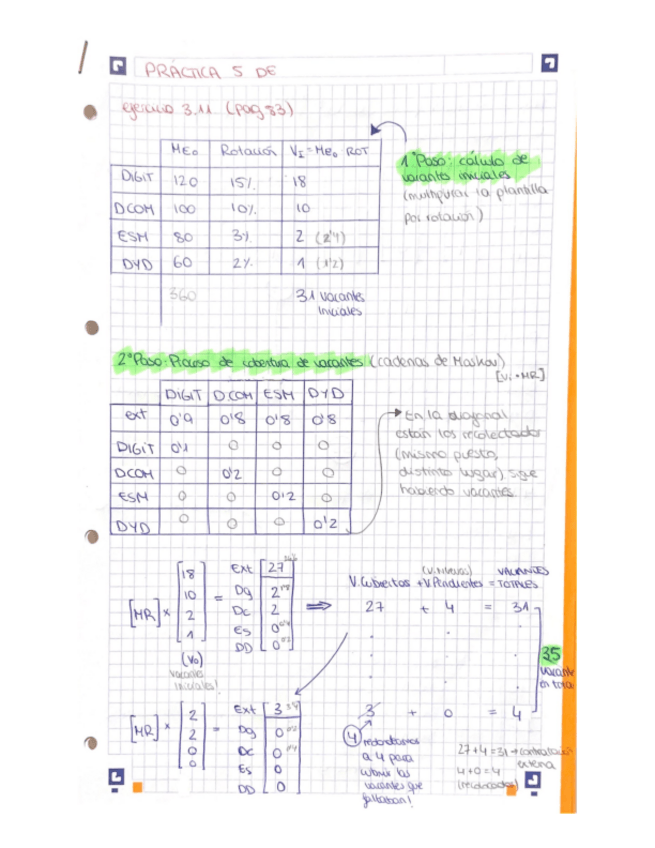 PRÁCTICA 5 DE
ejercicio 3.11 (pag 83)
ME₀ Rotación V_I = Me₀ ROT
DIGIT 120 15% 18
DCOM 100 10% 10
ESM 80 3% 2 (2'4)
DYD 60 2% 1 (1'2)
360 31 vacantes
iniciales
1º Paso: cálculo de
vacantes iniciales
(multiplicar la plantilla
por rotación)
2º Paso: Proceso de cobertura de vacantes (cadenas de Markov)
[V. · MR]
DIGIT DCOM ESM DYD
ext 0'9 0'8 0'8 0'8
DIGIT 0'1 0 0 0
DCOM 0 0'2 0 0
ESM 0 0 0'2 0
DYD 0 0 0 0'2
En la diagonal
están los recolectados
(mismo puesto,
distinto lugar) sigue
habiendo vacantes
[MR] × [18 10 2 1] =
(V₀)
vacantes
iniciales!
Ext 27
Dg 2
Dc 2
Es 0
DD 0
(V. nuevas) VACANTES
V. Cubiertas + V. Pendientes = TOTALES
27 + 4 = 31
35
vacante
en total
[MR] × [2 2 0 0] =
Ext 3
Dg 0
Dc 0
Es 0
DD 0
3 + 0 = 4
4 redondeamos
a 4 para
cubrir las
vacantes que
faltaban!
27+4=31 → contratación
externa
4+0=4
(recolocados)